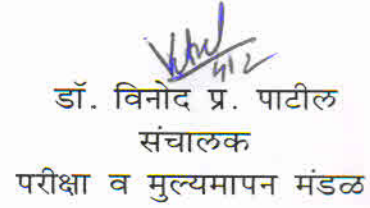 डॉ. विनोद प्र. पाटील
संचालक
परीक्षा व मुल्यमापन मंडळ